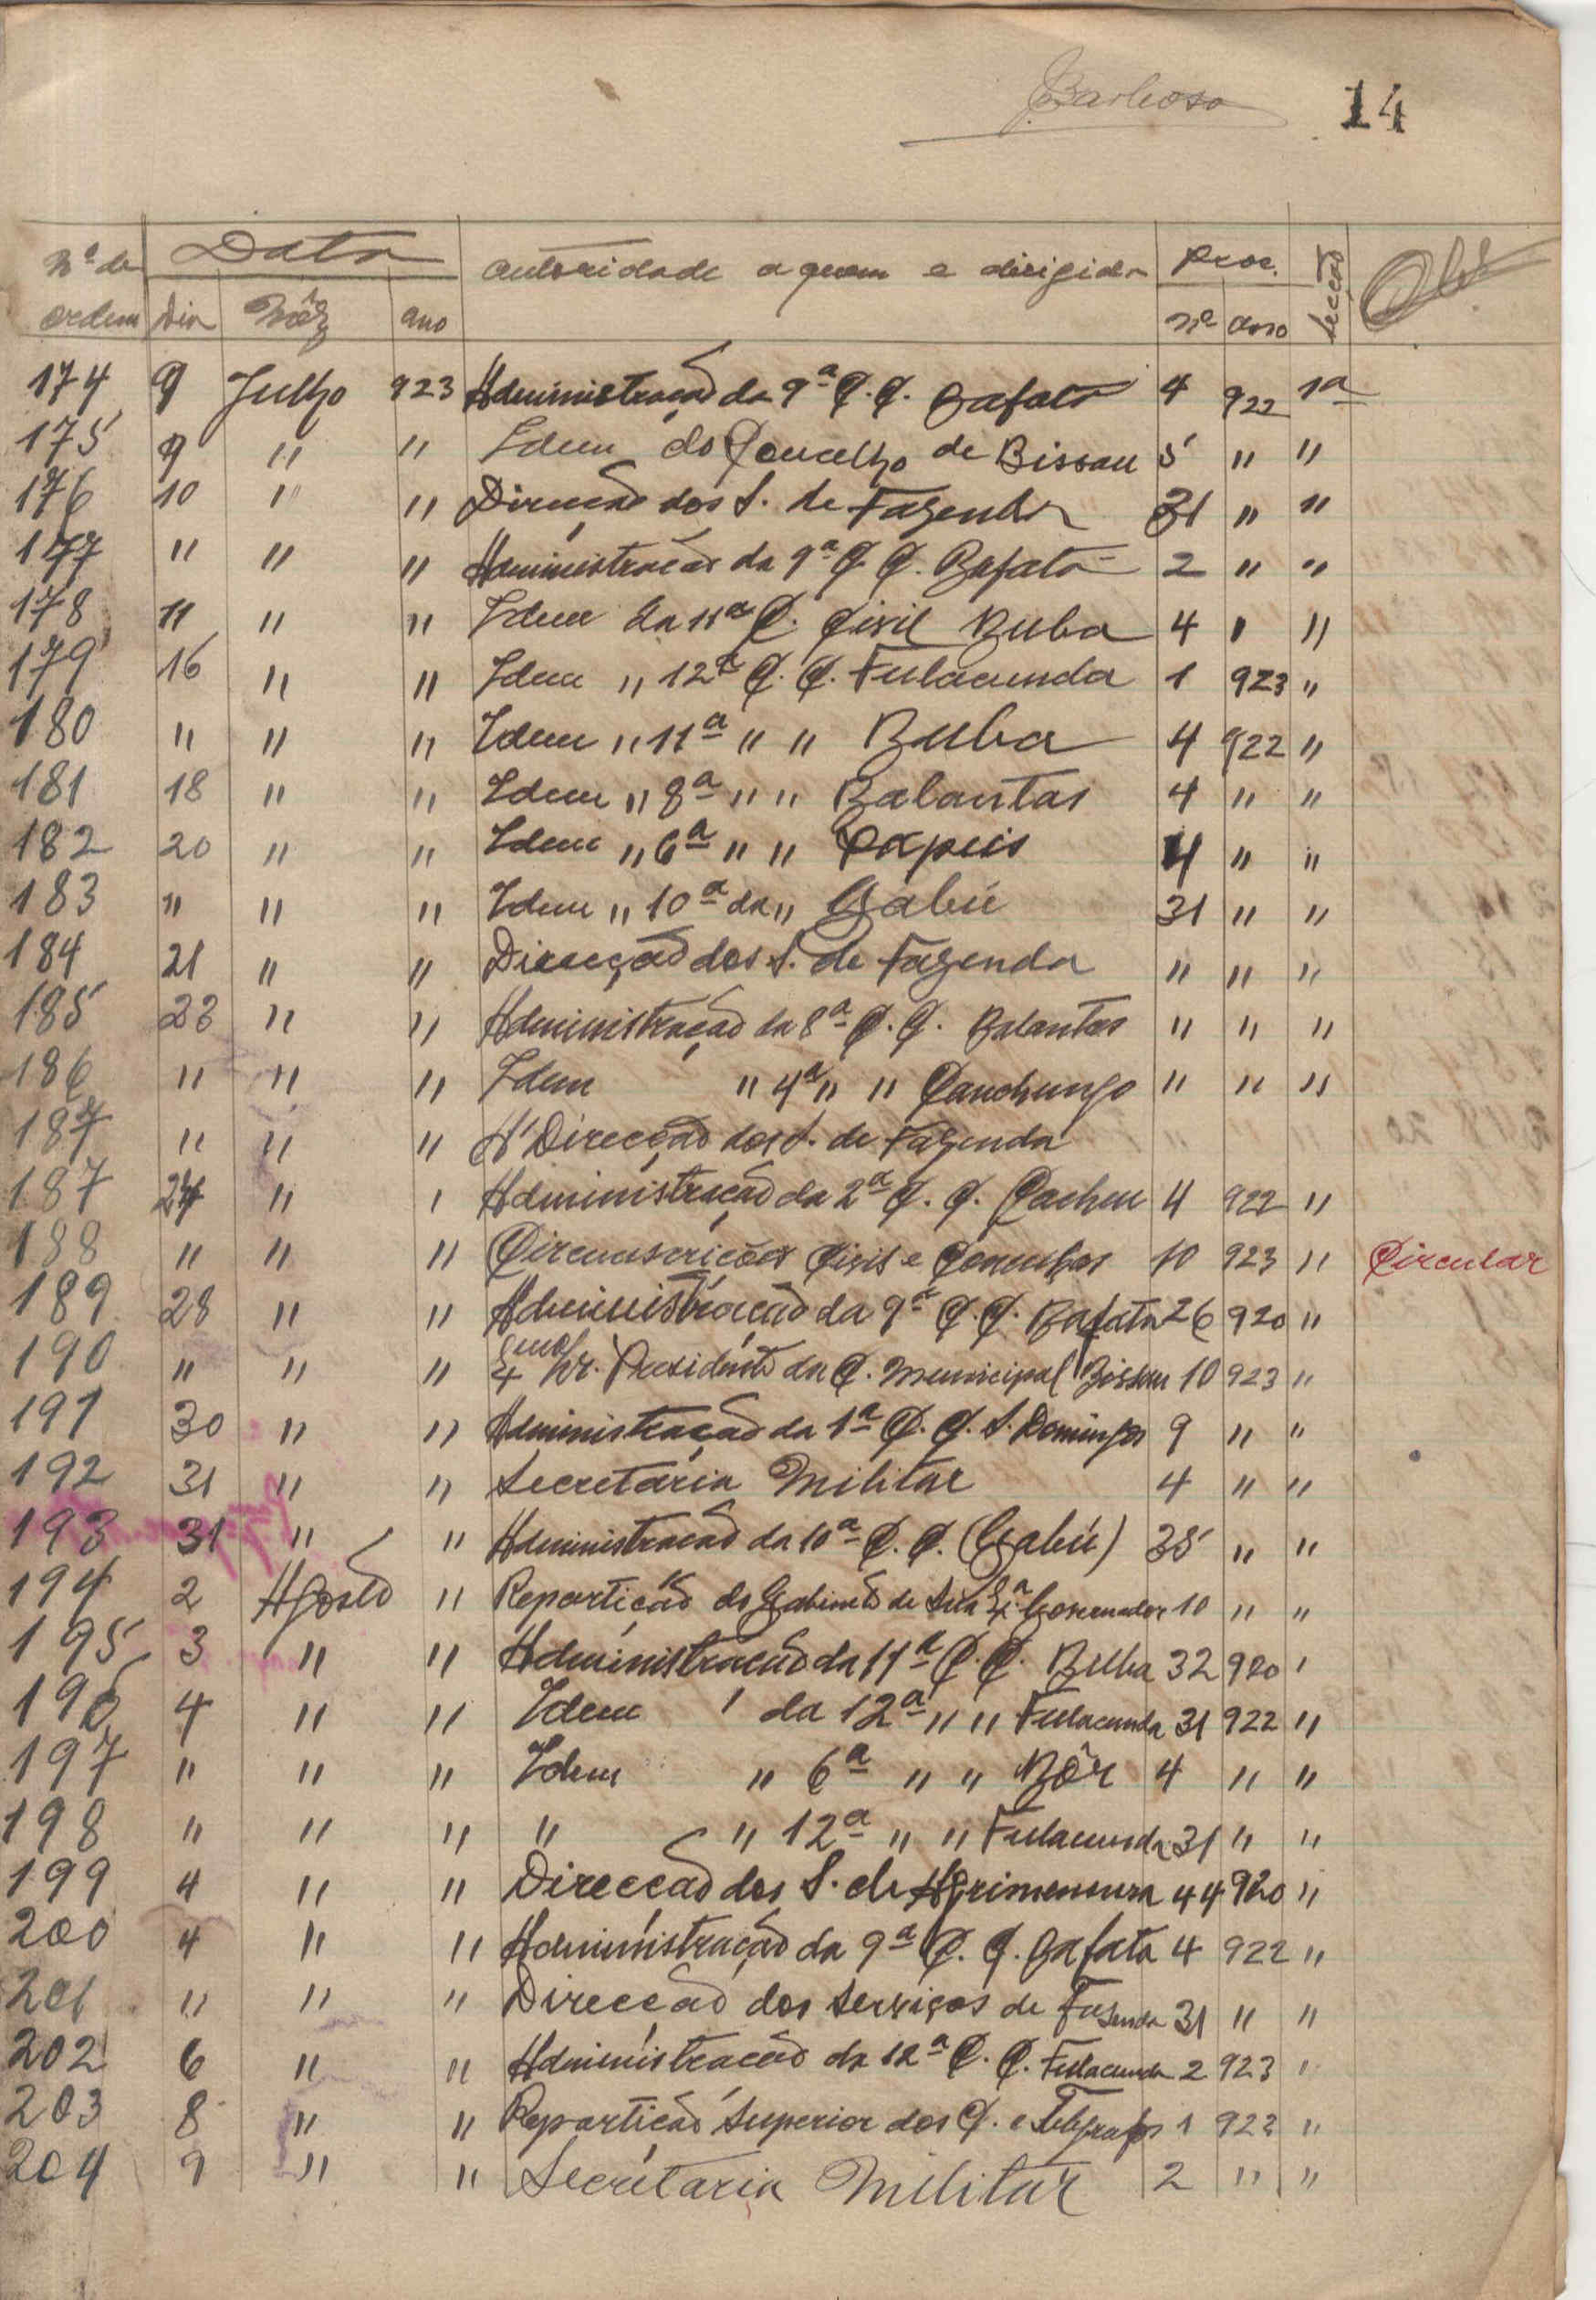 Barbosa 14
Nº de Data autoridade a quem e dirigida Proc. Secção Obs
ordem Dia Mêz ano Nº ano
174 9 Julho 923 Administração da 9ª C. C. Bafatá 4 922 1ª
175 9 " " Idem do Concelho de Bissau 5 " "
176 10 " " Direcção dos S. de Fazenda 31 " "
177 " " " Administração da 9ª C. C. Bafatá 2 " "
178 11 " " Idem da 11ª C. Civil Buba 4 " "
179 16 " " Idem " 12ª C. C. Fulacunda 1 923 "
180 " " " Idem " 11ª " " Buba 4 922 "
181 18 " " Idem " 8ª " " Balantas 4 " "
182 20 " " Idem " 6ª " " Papeis 4 " "
183 " " " Idem " 10ª da " Gabú 31 " "
184 21 " " Direcção dos S. de Fazenda " " "
185 23 " " Administração da 8ª C. C. Balantas " " "
186 " " " Idem " 4ª " " Canchungo " " "
187 " " " A' Direcção dos S. de Fazenda
187 24 " " Administração da 2ª C. C. Cacheu 4 922 "
188 " " " Circunscrições Civis e Concelhos 10 923 " Circular
189 28 " " Administração da 9ª C. C. Bafata 26 920 "
190 " " " Exmo Sr. Presidente da C. Municipal Bissau 10 923 "
191 30 " " Administração da 1ª C. C. S. Domingos 9 " "
192 31 " " Secretaria Militar 4 " "
193 31 " " Administração da 10ª C. C. (Gabú) 35 " "
194 2 Agosto " Repartição do Gabinete de Sua Exª Governador 10 " "
195 3 " " Administração da 11ª C. C. Buba 32 920 "
196 4 " " Idem ' da 12ª " " Fulacunda 31 922 "
197 " " " Idem " 6ª " " Bôr 4 " "
198 " " " " " 12ª " " Fulacunda 31 " "
199 4 " " Direcção dos S. de Agrimensura 44 920 "
200 4 " " Administração da 9ª C. C. Bafata 4 922 "
201 " " " Direcção dos Serviços de Fazenda 31 " "
202 6 " " Administração da 12ª C. C. Fulacunda 2 923 "
203 8 " " Repartição Superior dos C. e Telegrafos 1 923 "
204 9 " " Secretaria Militar 2 " "